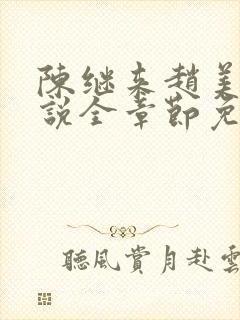 陳继来趙美
説全章節免
聽風賞月赴雲